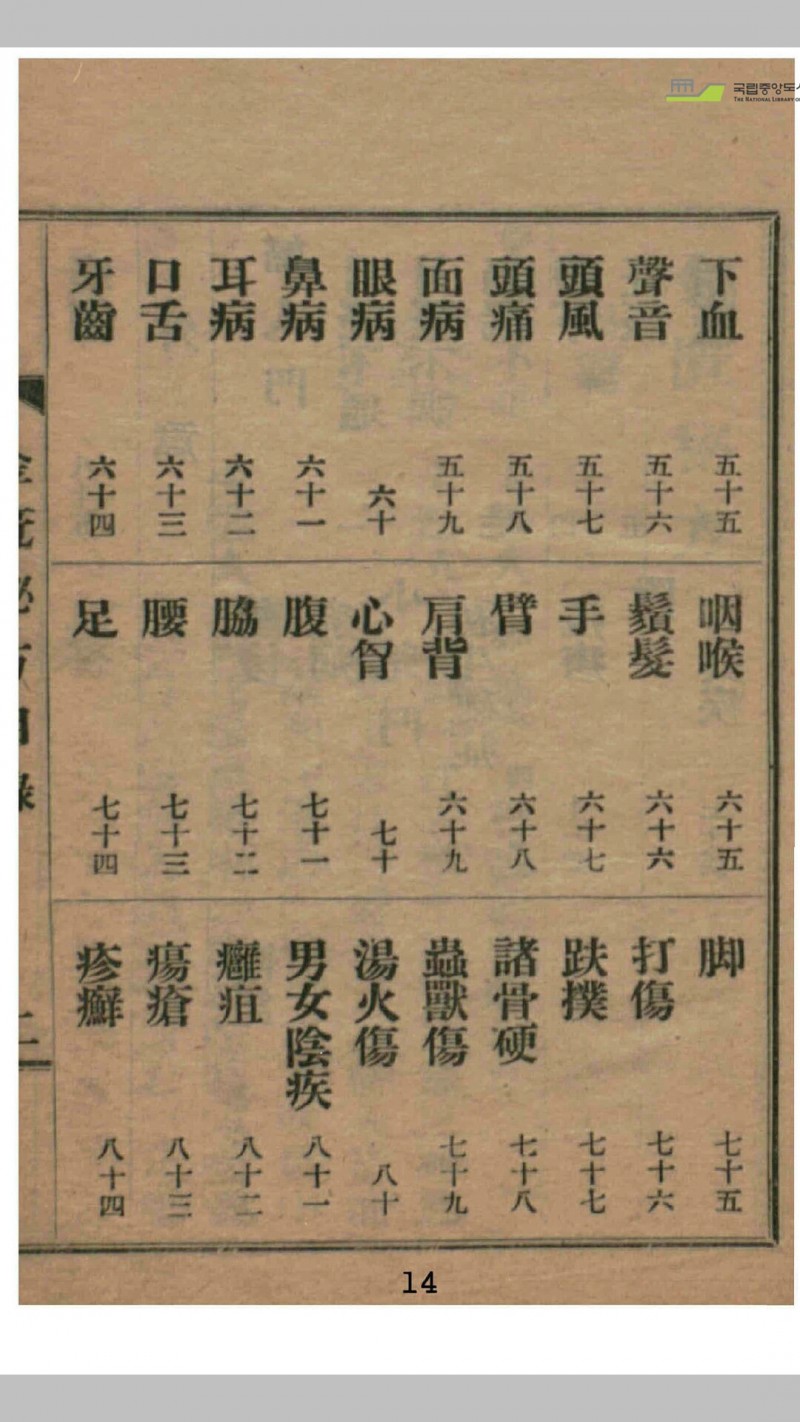 국립중앙도서
THE NATIONAL LIBRARY OF
下血 五十五
聲音 五十六
頭風 五十七
頭痛 五十八
面病 五十九
眼病 六十
鼻病 六十一
耳病 六十二
口舌 六十三
牙齒 六十四
咽喉 六十五
鬚髮 六十六
手 六十七
臂 六十八
肩背 六十九
心胷 七十
腹 七十一
脇 七十二
腰 七十三
足 七十四
脚 七十五
打傷 七十六
跌撲 七十七
諸骨硬 七十八
蟲獸傷 七十九
湯火傷 八十
男女陰疾 八十一
癰疽 八十二
瘍瘡 八十三
疹癬 八十四
二
14